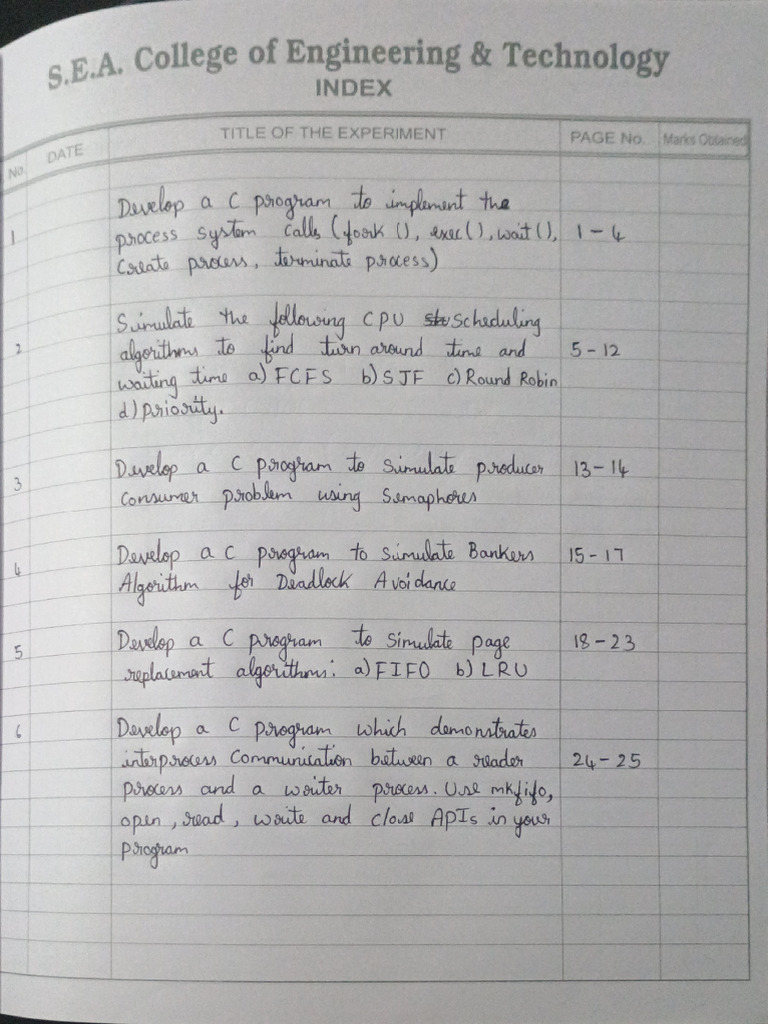 S.E.A. College of Engineering & Technology
INDEX
No. DATE TITLE OF THE EXPERIMENT PAGE No. Marks Obtained
Develop a C program to implement the
1 process system calls (fork (), exec(), wait(), 1 - 4
Create process, terminate process)
Simulate the following CPU Scheduling
2 algorithms to find turn around time and 5 - 12
waiting time a) FCFS b) SJF c) Round Robin
d) priority.
3 Develop a C program to simulate producer 13 - 14
Consumer problem using Semaphores
4 Develop a C program to simulate Bankers 15 - 17
Algorithm for Deadlock Avoidance
5 Develop a C program to simulate page 18 - 23
replacement algorithms: a) FIFO b) LRU
6 Develop a C program which demonstrates
interprocess Communication between a reader 24 - 25
process and a writer process. Use mkfifo,
open, read, write and close APIs in your
program